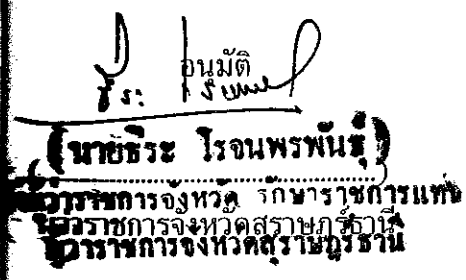 อนุมัติ
ธีระ
(นายธีระ โรจนพรพันธุ์)
ราชการจังหวัด รักษาราชการแทน
ราชการจังหวัดสุราษฎร์ธานี
ราชการจังหวัดสุราษฎร์ธานี